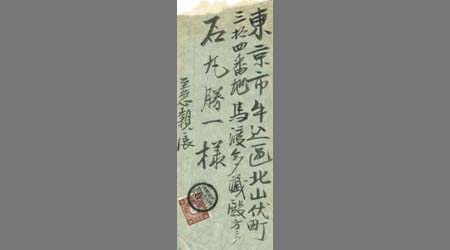 東京市牛込區北山伏町
三拾四番地馬渡多藏殿方ニ
石丸勝一様
至急親展